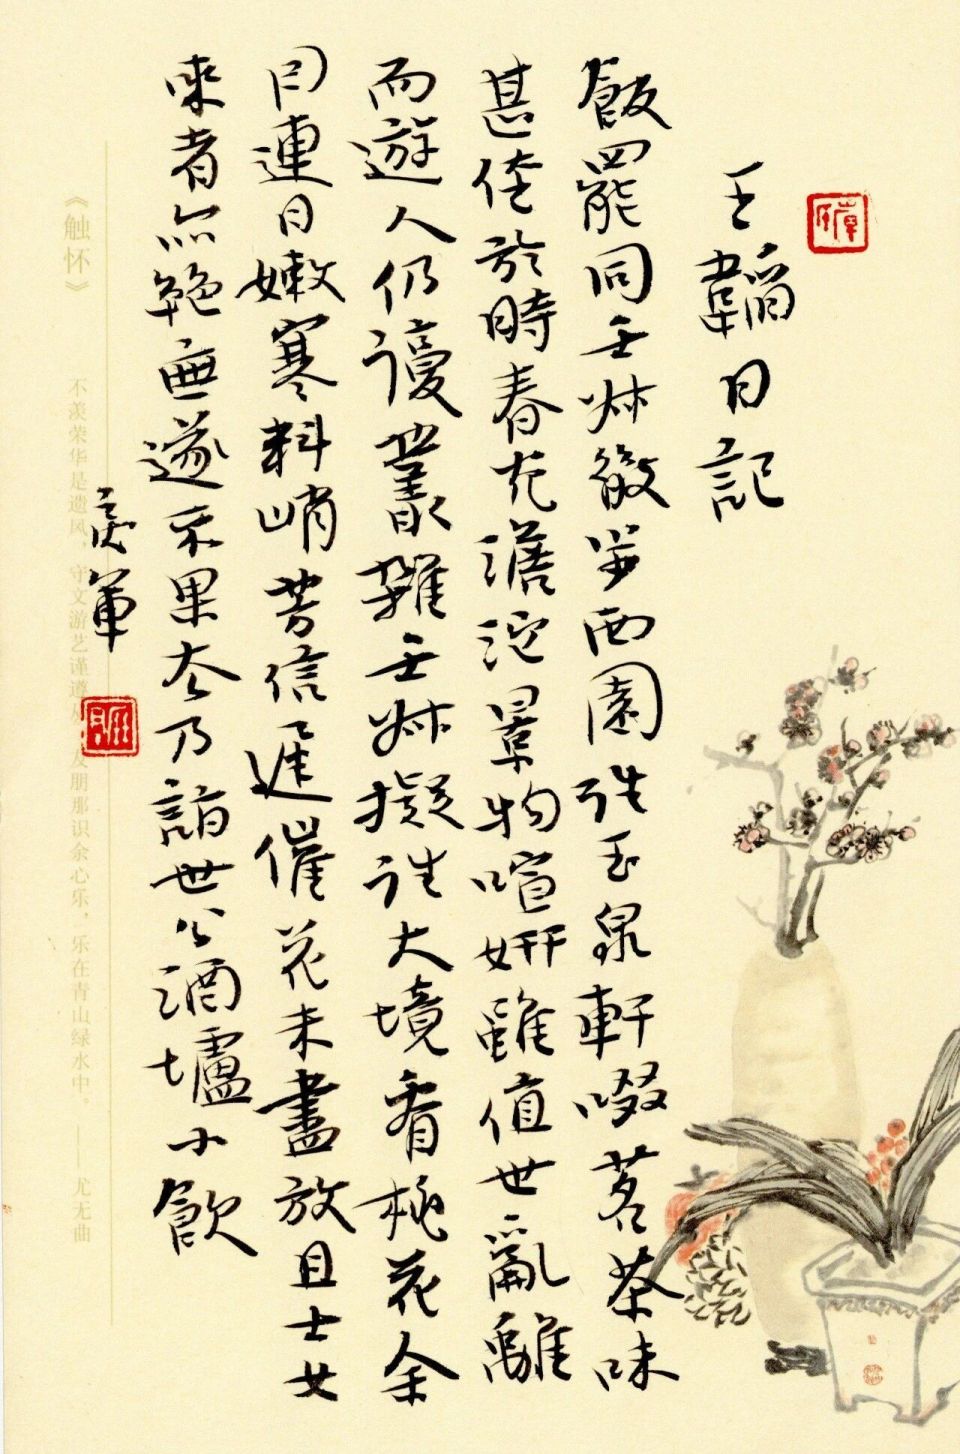 王韜日記
飯罷同壬叔散步西園往玉泉軒啜茗茶味
甚佳於時春光澹沱景物喧妍雖值世亂離
而遊人仍謾叢雜壬叔擬往大境看桃花余
曰連日嫩寒料峭芳信遲催花未盡放且士女
來者亦絕無遂不果去乃詣世公酒壚小飲
《触怀》
不羡荣华是遗风，守文游艺谨遵 朋那识余心乐，乐在青山绿水中。——尤无曲